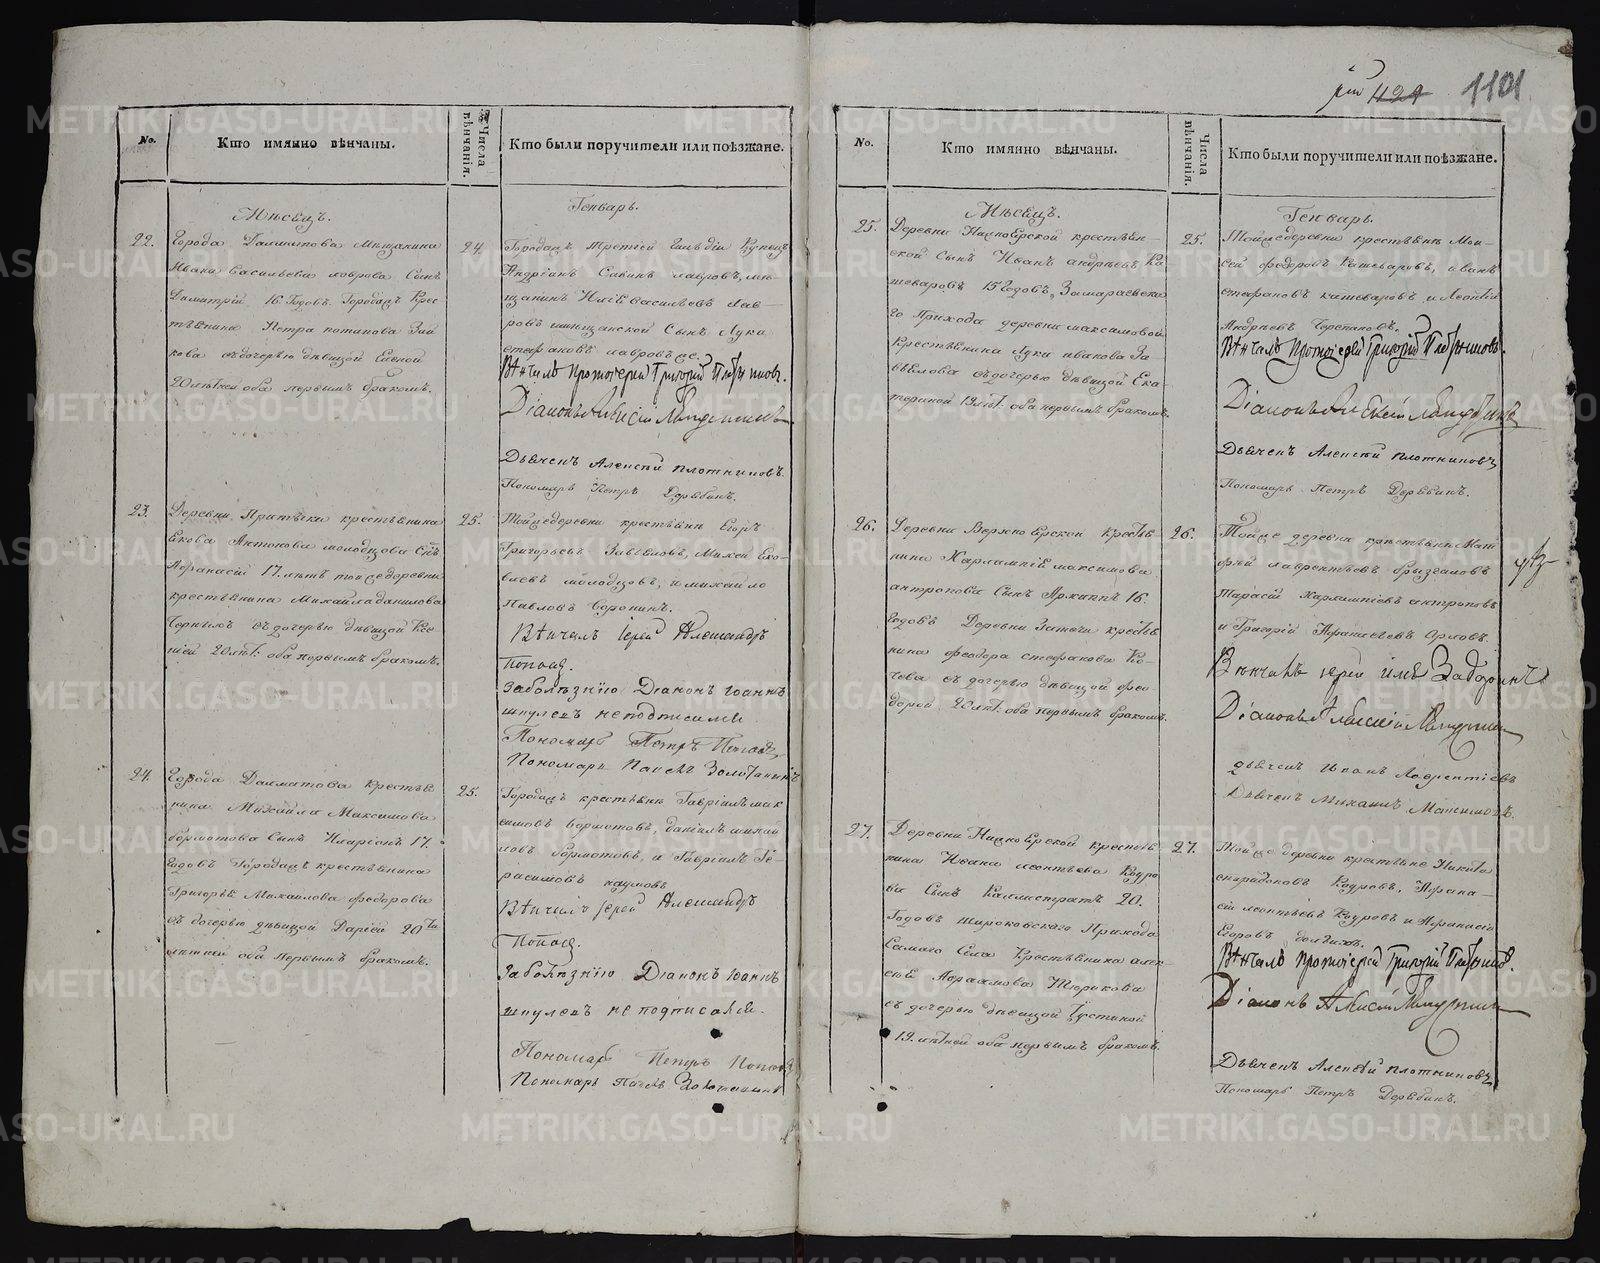 рги 421 1101
No.
Кто имянно вѣнчаны.
Числа вѣнчанія.
Кто были поручители или поѣзжане.
Мѣсецъ.
Генварь.
22.
Города Далматова мѣщанина
Ивана Васильева лаврова Сынъ
Димитрій 16 Годовъ. Городацъ Крес
тьянина Петра потапова Зай
кова съ дочерью дѣвицой Еленой
20 лѣтней оба первымъ бракомъ.
24.
Городацъ третіей Гильдіи Купецъ
Андріянъ Савинъ лавровъ, мѣ-
щанинъ Илія васильевъ Лав-
ровъ мѣщанской Сынъ Лука
стефановъ лавровъ же.
Вѣнчалъ Протоіерей Григорій Плотниковъ.
Діаконъ Алексій
Дьячекъ Алексѣй плотниковъ.
Пономарь Петръ Дерябинъ.
23.
Деревни Притыки крестьянина
Екова Антонова молодцова Сынъ
Афанасій 17. лѣтъ тоя же деревни
крестьянина Михайла данилова
Черныхъ съ дочерью дѣвицой Ксе-
ніей 20 лѣт: оба первымъ бракомъ.
25.
Тойже деревни крестьяне Егоръ
Григорьевъ Завьяловъ, Михей Ека-
влевъ молодцовъ, и михайло
Павловъ Сорокинъ.
Вѣнчалъ Іерей Александръ
Поповъ.
За болѣзнію Діаконъ Іоаннъ
шнулевъ не подписалъ
Пономарь Петръ Поповъ
Пономарь Павелъ Золотанинъ
24.
Города Далматова Крестья
нина Михайла Максимова
бормотова Сынъ Иларіонъ 17.
Годовъ Городацъ крестьянина
Григорья Михайлова федорова
съ дочерью дѣвицой Даріей 20ти
лѣтней оба первымъ бракомъ.
25.
Городацъ крестьяне Гавріилъ мак
симовъ бормотовъ, даніилъ михай
ловъ бормотовъ, и Гавріилъ Ге-
расимовъ наумовъ
Вѣнчалъ Іерей Александръ
Поповъ.
За болѣзнію Діаконъ Іоаннъ
шнулевъ не подписался.
Пономарь Петръ Поповъ
Пономарь Павелъ Золотанинъ
No.
Кто имянно вѣнчаны.
Числа вѣнчанія.
Кто были поручители или поѣзжане.
Мѣсецъ.
Генварь.
25.
Деревни Нижноярской крестьян-
ской Сынъ Иванъ андрѣевъ Ка
шеваровъ 15 Годовъ, Замараевска
го Прихода деревни максимовой
Крестьянина Луки иванова За
вьялова съ дочерью дѣвицой Ека
териной 19 лѣт: оба первымъ бракомъ.
25.
Тойже деревни крестьяне Мои-
сей федоровъ Кашеваровъ, иванъ
стефановъ кашеваровъ и Леонтій
Андрѣевъ Черепановъ.
Вѣнчалъ Протоіерей Григорій Плотниковъ.
Діаконъ Алексій
Дьячекъ Алексѣй плотниковъ
Пономарь Петръ Дерябинъ.
26.
Деревни Верхноярской крестья
нина Харлампія максимова
антропова Сынъ Архипъ 16.
Годовъ Деревни Затечи крестья
нина федора стефанова Ко-
чева съ дочерью дѣвицой фео
дорой 20 лѣт: оба первымъ бракомъ.
26.
Тойже деревни крестьяне Мат
фей лаврентьевъ брызгаловъ
Тарасій Харлампіевъ антроповъ
и Григорій Афанасьевъ Орловъ.
Вѣнчалъ іерей
Діаконъ Алексій
дьячекъ Иванъ Лаврентіевъ
Дьячекъ Михаилъ
27.
Деревни Нижноярской крестья
нина Ивана леонтьева Кодро
ва Сынъ Каллистратъ 20.
Годовъ Широковскаго Прихода
Самаго Села Крестьянина алек
сея Абрамова Тюрикова
съ дочерью дѣвицой Густиной
19. лѣтней оба первымъ бракомъ.
27.
Тойже деревни крестьяне Никита
спиридоновъ Кодровъ, Афана-
сій леонтьевъ Кодровъ и Афанасій
Егоровъ долгихъ.
Вѣнчалъ Протоіерей Григорій Плотниковъ.
Діаконъ Алексій
Дьячекъ Алексѣй плотниковъ
Пономарь Петръ Дерябинъ.
METRIKI.GASO-URAL.RU